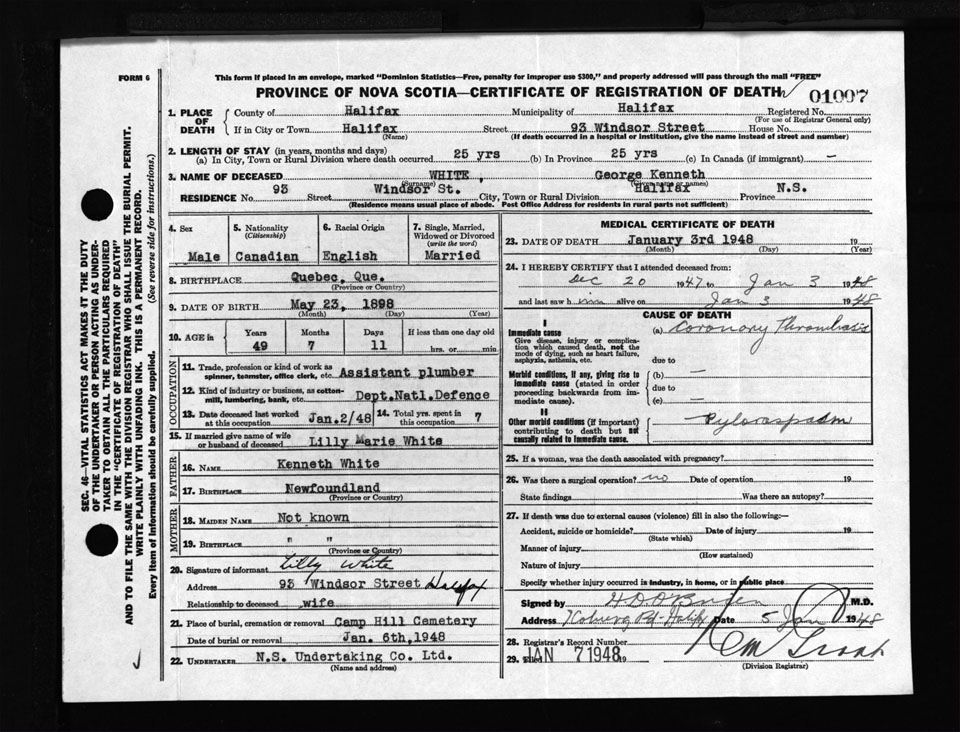 FORM 6
This form if placed in an envelope, marked "Dominion Statistics—Free, penalty for improper use $300," and properly addressed will pass through the mail "FREE"
PROVINCE OF NOVA SCOTIA—CERTIFICATE OF REGISTRATION OF DEATH
01007
1. PLACE OF DEATH
County of Halifax Municipality of Halifax Registered No.
(For use of Registrar General only)
If in City or Town Halifax Street 93 Windsor Street House No.
(Name) (If death occurred in a hospital or institution, give the name instead of street and number)
2. LENGTH OF STAY (in years, months and days)
(a) In City, Town or Rural Division where death occurred 25 yrs (b) In Province 25 yrs (c) In Canada (if immigrant) —
3. NAME OF DECEASED WHITE, George Kenneth
(Surname) (Given name or names)
RESIDENCE No. 93 Street Windsor St. City, Town or Rural Division Halifax Province N.S.
(Residence means usual place of abode. Post Office Address for residents in rural parts not sufficient)
4. Sex
Male
5. Nationality
(Citizenship)
Canadian
6. Racial Origin
English
7. Single, Married, Widowed or Divorced
(write the word)
Married
8. BIRTHPLACE Quebec, Que.
(Province or Country)
9. DATE OF BIRTH May 23, 1898
(Month) (Day) (Year)
10. AGE in
Years Months Days If less than one day old
49 7 11 hrs. or min.
OCCUPATION
11. Trade, profession or kind of work as spinner, teamster, office clerk, etc. Assistant plumber
12. Kind of industry or business, as cotton-mill, lumbering, bank, etc. Dept.Natl.Defence
13. Date deceased last worked at this occupation Jan.2/48
14. Total yrs. spent in this occupation 7
15. If married give name of wife or husband of deceased Lilly Marie White
FATHER
16. NAME Kenneth White
17. BIRTHPLACE Newfoundland
(Province or Country)
MOTHER
18. MAIDEN NAME Not known
19. BIRTHPLACE " "
(Province or Country)
20. Signature of informant Lilly White
Address 93 Windsor Street Halifax
Relationship to deceased wife
21. Place of burial, cremation or removal Camp Hill Cemetery
Date of burial or removal Jan. 6th, 1948
22. UNDERTAKER N.S. Undertaking Co. Ltd.
(Name and address)
MEDICAL CERTIFICATE OF DEATH
23. DATE OF DEATH January 3rd 1948 19
(Month) (Day) (Year)
24. I HEREBY CERTIFY that I attended deceased from:
Dec 20 1947 to Jan 3 1948
and last saw him alive on Jan 3 1948
CAUSE OF DEATH
I
Immediate cause
Give disease, injury or complication which caused death, not the mode of dying, such as heart failure, asphyxia, asthenia, etc.
(a) Coronary Thrombosis
due to
Morbid conditions, if any, giving rise to immediate cause (stated in order proceeding backwards from immediate cause).
(b) —
due to
(c) —
II
Other morbid conditions (if important) contributing to death but not causally related to immediate cause.
Pylorospasm
25. If a woman, was the death associated with pregnancy?
26. Was there a surgical operation? no Date of operation 19
State findings Was there an autopsy?
27. If death was due to external causes (violence) fill in also the following:—
Accident, suicide or homicide? Date of injury 19
(State which)
Manner of injury
(How sustained)
Nature of injury
Specify whether injury occurred in industry, in home, or in public place
Signed by M.D.
Address Coburg Rd. Halifx Date 5 Jan 1948
28. Registrar's Record Number
29. Filed JAN 7 1948 19
(Division Registrar)
SEC. 46—VITAL STATISTICS ACT MAKES AT THE DUTY
OF THE UNDERTAKER OR PERSON ACTING AS UNDER-
TAKER TO OBTAIN ALL THE PARTICULARS REQUIRED
IN THE "CERTIFICATE OF REGISTRATION OF DEATH"
AND TO FILE THE SAME WITH THE DIVISION REGISTRAR WHO SHALL ISSUE THE BURIAL PERMIT.
WRITE PLAINLY WITH UNFADING INK. THIS IS A PERMANENT RECORD.
Every item of information should be carefully supplied. (See reverse side for instructions.)